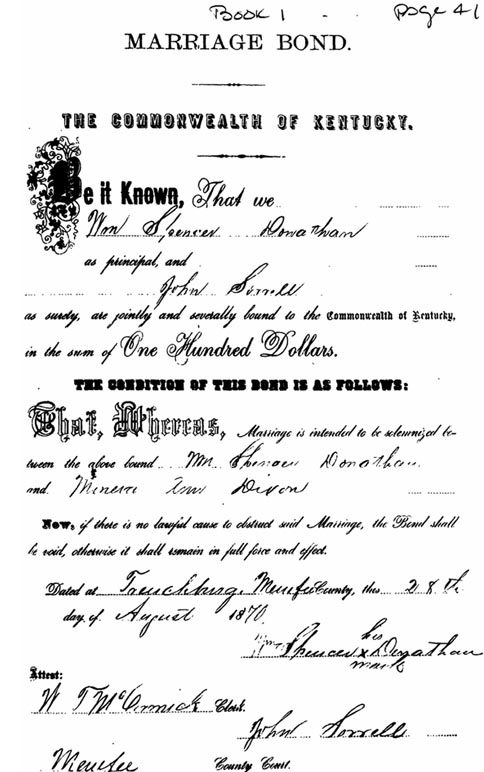 Book 1 - page 41
MARRIAGE BOND.
THE COMMONWEALTH OF KENTUCKY.
Be it Known, That we
Wm Spencer Donathan
as principal, and
John Sorrell
as surety, are jointly and severally bound to the Commonwealth of Kentucky,
in the sum of One Hundred Dollars.
THE CONDITION OF THIS BOND IS AS FOLLOWS:
That, Whereas, Marriage is intended to be solemnized be-
tween the above bound Wm Spencer Donathan
and Minerva Ann Dixon
Now, if there is no lawful cause to obstruct said Marriage, the Bond shall
be void, otherwise it shall remain in full force and effect.
Dated at Frenchburg, Menifee County, this 28th
day of August 1870.
his
Wm Spencer x Donathan
mark
Attest:
W T McCormick Clerk.
John Sorrell
Menifee County Court.